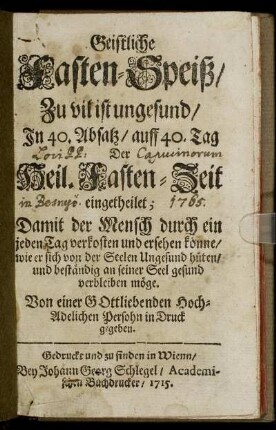 Geistliche
Fasten-Speiß/
Zu vil ist ungesund/
In 40. Absatz/ auff 40. Tag
Loci PP. Der Capucinorum
Heil. Fasten-Zeit
in Besnyö. eingetheilet; 1765.
Damit der Mensch durch ein
jeden Tag verkosten und ersehen könne/
wie er sich von der Seelen Ungesund hüten/
und beständig an seiner Seel gesund
verbleiben möge.
Von einer GOttliebenden Hoch-
Adelichen Persohn in Druck
gegeben.
Gedruckt und zu finden in Wienn/
Bey Johann Georg Schlegel/ Academi-
schen Buchdrucker/ 1715.